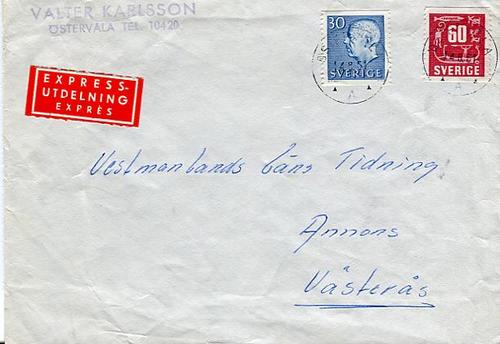 VALTER KARLSSON
ÖSTERVALA TEL. 10420
30
SVERIGE
60
SVERIGE
A
A
EXPRESS-
UTDELNING
EXPRÈS
Vestmanlands Läns Tidning
Annons
Västerås